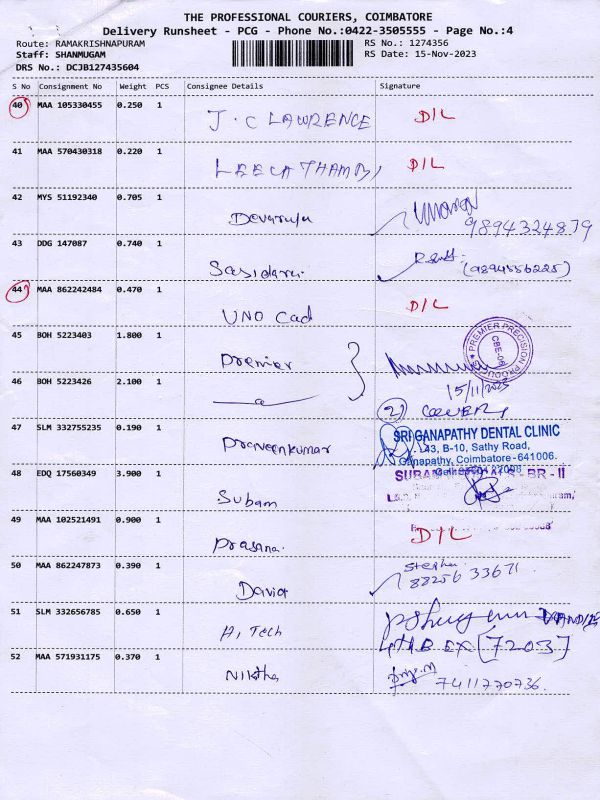 THE PROFESSIONAL COURIERS, COIMBATORE
Delivery Runsheet - PCG - Phone No.:0422-3505555 - Page No.:4
Route: RAMAKRISHNAPURAM RS No.: 1274356
Staff: SHANMUGAM RS Date: 15-Nov-2023
DRS No.: DCJB127435604
S No Consignment No Weight PCS Consignee Details Signature
40 MAA 105330455 0.250 1 J.C LAWRENCE D/L
41 MAA 570430318 0.220 1 D/L
42 MYS 51192340 0.705 1 Devaraju 9894324879
43 DDG 147087 0.740 1 (9894556225)
44 MAA 862242484 0.470 1 UNO Cad D/L
45 BOH 5223403 1.800 1 Premier
PREMIER PRECISION PRODUCTS
CBE-06
15/11/2023
46 BOH 5223426 2.100 1
2) COVER
47 SLM 332755235 0.190 1 Praveenkumar
SRI GANAPATHY DENTAL CLINIC
143, B-10, Sathy Road,
Ganapathy, Coimbatore-641006.
48 EDQ 17560349 3.900 1 Subam
BR - II
49 MAA 102521491 0.900 1 Prasana. D/L
50 MAA 862247873 0.390 1 David Stephen
88256 33671
51 SLM 332656785 0.650 1 Hi Tech
[7203]
52 MAA 571931175 0.370 1 7411770736.